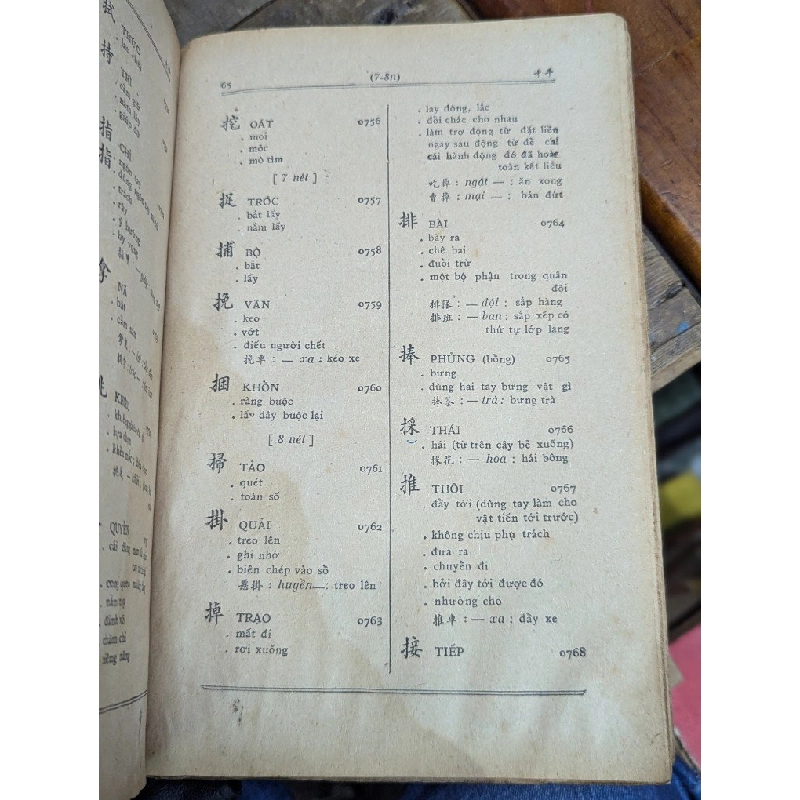 65 (7-8n) 手手
挖 OÁT 0756
. moi
. móc
. mò tìm
[ 7 nét ]
捉 TRÓC 0757
. bắt lấy
. nắm lấy
捕 BỘ 0758
. bắt
. lấy
挽 VÃN 0759
. kéo
. vớt
. điếu người chết
挽車 : — xa : kéo xe
捆 KHỔN 0760
. ràng buộc
. lấy dây buộc lại
[ 8 nét ]
掃 TẢO 0761
. quét
. toàn số
掛 QUẢI 0762
. treo lên
. ghi nhớ
. biên chép vào sổ
懸掛 : huyền — : treo lên
掉 TRẠO 0763
. mất đi
. rơi xuống
. lay động, lắc
. đổi chác cho nhau
. làm trợ động từ đặt liền
ngay sau động từ để chỉ
cái hành động đó đã hoàn
toàn kết liễu
吃掉 : ngật — : ăn xong
賣掉 : mại — : bán đứt
排 BÀI 0764
. bày ra
. chê bai
. đuổi trừ
. một bộ phận trong quân
đội
排隊 : — đội : sắp hàng
排班 : — ban : sắp xếp có
thứ tự lớp lang
捧 PHỦNG (bồng) 0765
. bưng
. dùng hai tay bưng vật gì
捧茶 : — trà : bưng trà
採 THÁI 0766
. hái (từ trên cây bẻ xuống)
採花 : — hoa : hái bông
推 THÔI 0767
đẩy tới (dùng tay làm cho
vật tiến tới trước)
. không chịu phụ trách
. đưa ra
. chuyển đi
. hởi đây tới được đó
. nhường cho
推車 : — xa : đẩy xe
接 TIẾP 0768